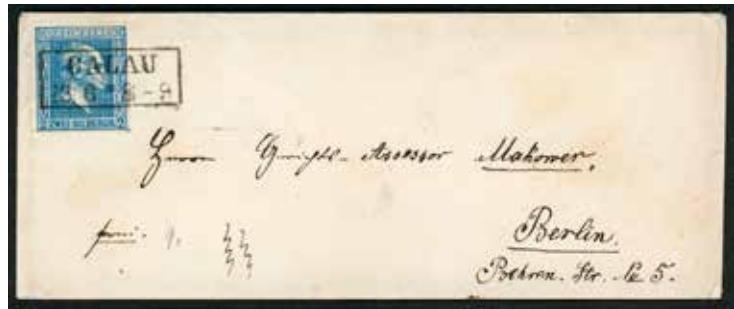 CALAU
Herrn Gerichts-Assessor Makower,
frei.
Berlin.
Behren. Str. No 5.